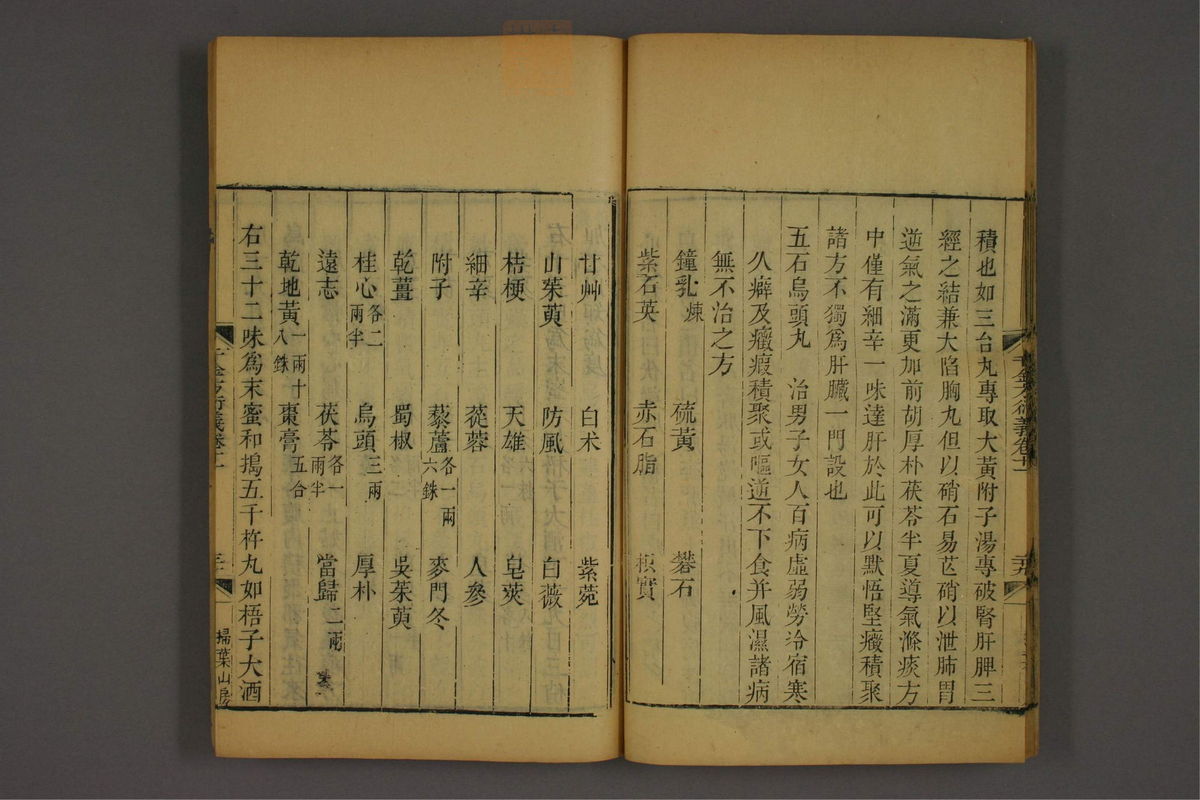 積也如三台丸專取大黃附子湯專破腎肝脾三
經之結兼大陷胸丸但以硝石易芒硝以泄肺胃
逆氣之滿更加前胡厚朴茯苓半夏導氣滌痰方
中僅有細辛一味達肝於此可以默悟堅癥積聚
諸方不獨爲肝臟一門設也
五石烏頭丸　治男子女人百病虛弱勞冷宿寒
久癖及癥瘕積聚或嘔逆不下食并風濕諸病
無不治之方
鐘乳煉　硫黃　礬石
紫石英　赤石脂　枳實
甘艸　白术　紫菀
山茱萸　防風　白薇
桔梗　天雄　皂莢
細辛　蓯蓉　人參
附子　藜蘆各一兩六銖　麥門冬
乾薑　蜀椒　吳茱萸
桂心各二兩半　烏頭三兩　厚朴
遠志　茯苓各一兩半　當歸二兩
乾地黃一兩十八銖　棗膏五合
右三十二味爲末蜜和搗五千杵丸如梧子大酒
千金方衍義卷十一
掃葉山房